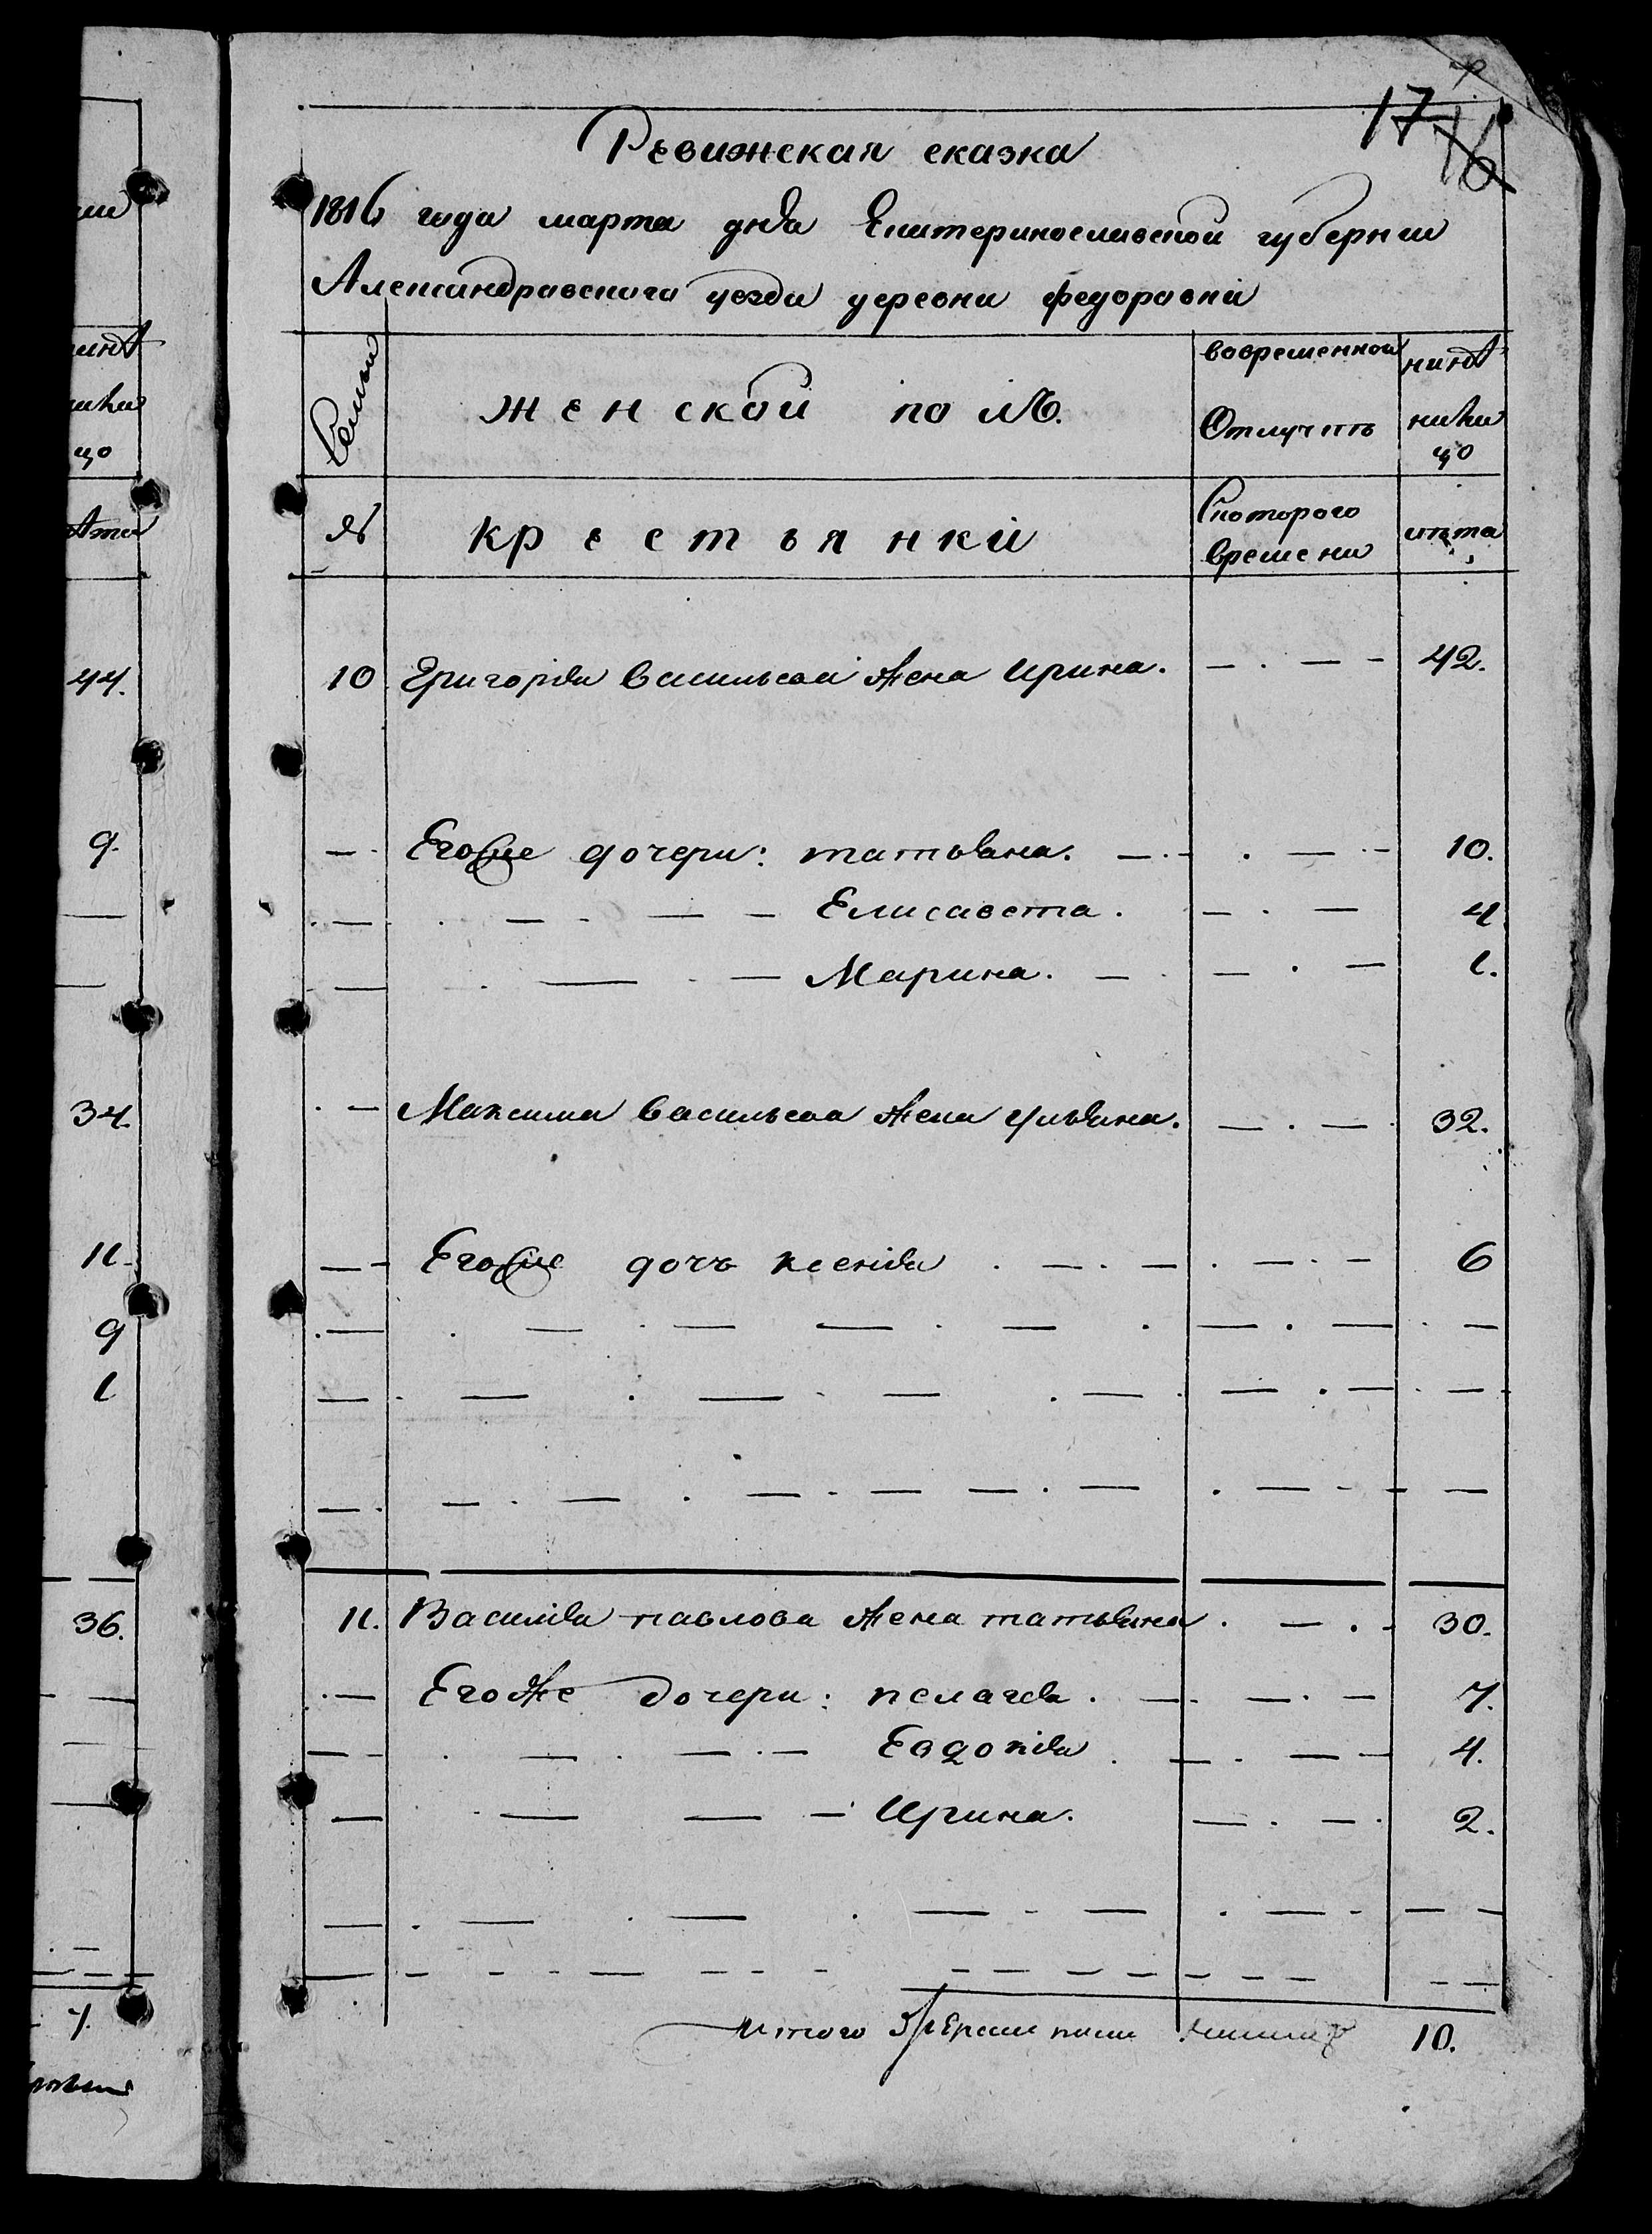 17 16
Ревижская сказка
1816 года марта дня Екатеринославской губернии
Александравскога уезда деревни федоравки
Семьи
женской полъ.
вовременной
Отлучкѣ
нынѣ
налицо
№
крестьянки
Скоторого
времени
лѣта
10 Григорія васильева жена ирина. 42.
Егоже дочери: татьяна. 10.
Елисавета. 4
Марина. 1.
Максима васильева жена ульяна. 32.
Егоже дочь ксенія 6
11. Василія павлова жена татьяна. 30.
Егоже дочери: пелагея. 7.
Евдокія 4.
Ирина. 2.
итого женска пола налицо 10.
44.
9.
34.
11.
9
1
36.
7.